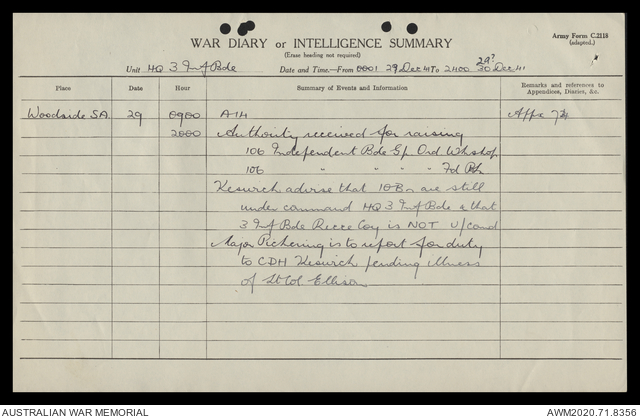 Army Form C.2118
(adapted.)
WAR DIARY or INTELLIGENCE SUMMARY
(Erase heading not required)
Unit HQ 3 Inf Bde Date and Time—From 0001 29 Dec 41 To 2400 30 Dec 41
29?
Place Date Hour Summary of Events and Information Remarks and references to Appendices, Diaries, &c.
Woodside SA. 29 0900 A14 Appx 74
2000 Authority received for raising
106 Independent Bde Gp Ord Wkshop
106 " " " Fd Pk
Keswick advise that 10Bn are still
under command HQ 3 Inf Bde & that
3 Inf Bde Recce Coy is NOT u/comd
Major Pickering is to report for duty
to CDH Keswick pending illness
of Lt Col Ellison
AUSTRALIAN WAR MEMORIAL
AWM2020.71.8356